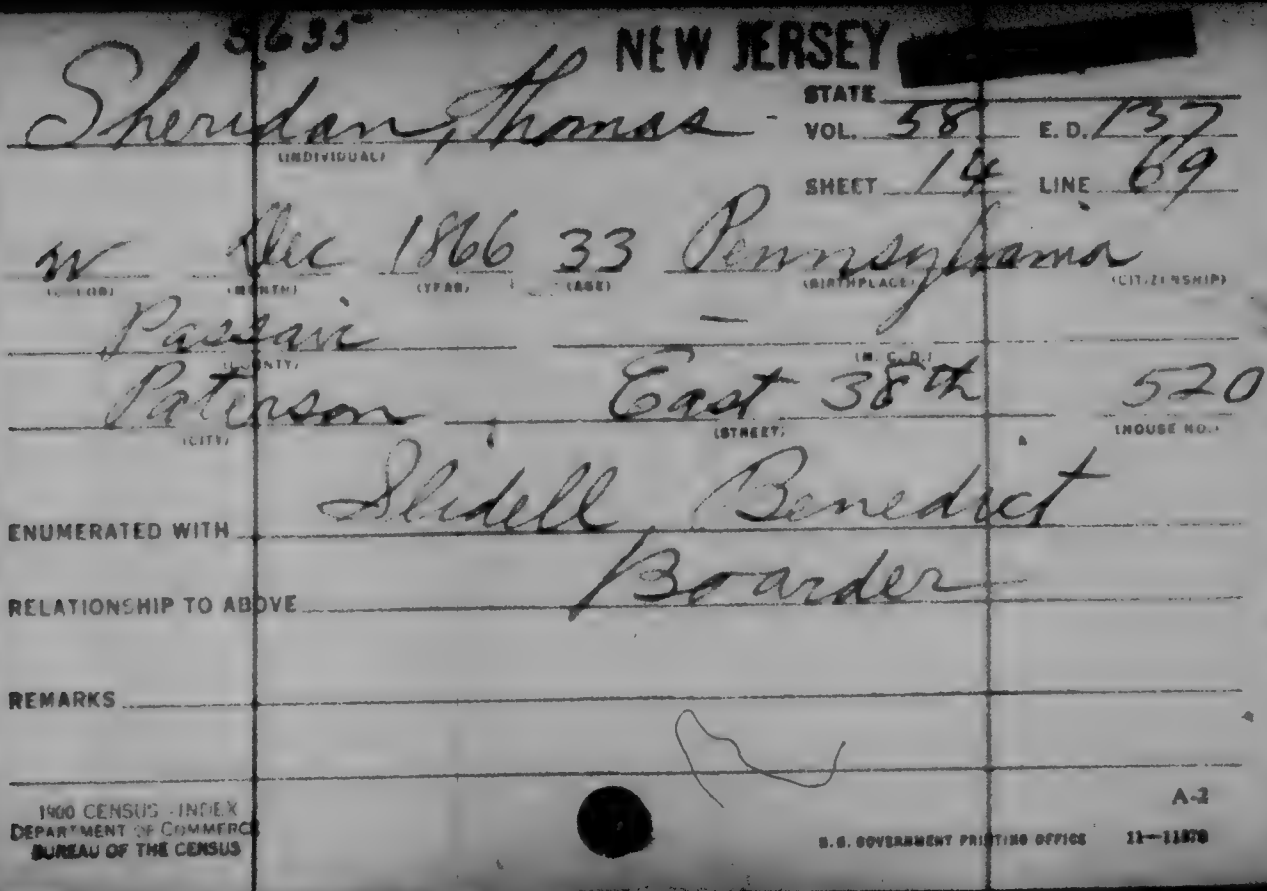 NEW JERSEY
STATE
Sheridan, Thomas
(INDIVIDUAL)
VOL. 58 E.D. 137
SHEET 14 LINE 69
W Dec 1866 33 Pennsylvania
(COLOR) (MONTH) (YEAR) (AGE) (BIRTHPLACE) (CITIZENSHIP)
Passaic —
(COUNTY) (M. C. D.)
Paterson East 38th 520
(CITY) (STREET) (HOUSE NO.)
ENUMERATED WITH Slidell, Benedict
RELATIONSHIP TO ABOVE Boarder
REMARKS
A-2
1900 CENSUS - INDEX
DEPARTMENT OF COMMERCE
BUREAU OF THE CENSUS
U.S. GOVERNMENT PRINTING OFFICE